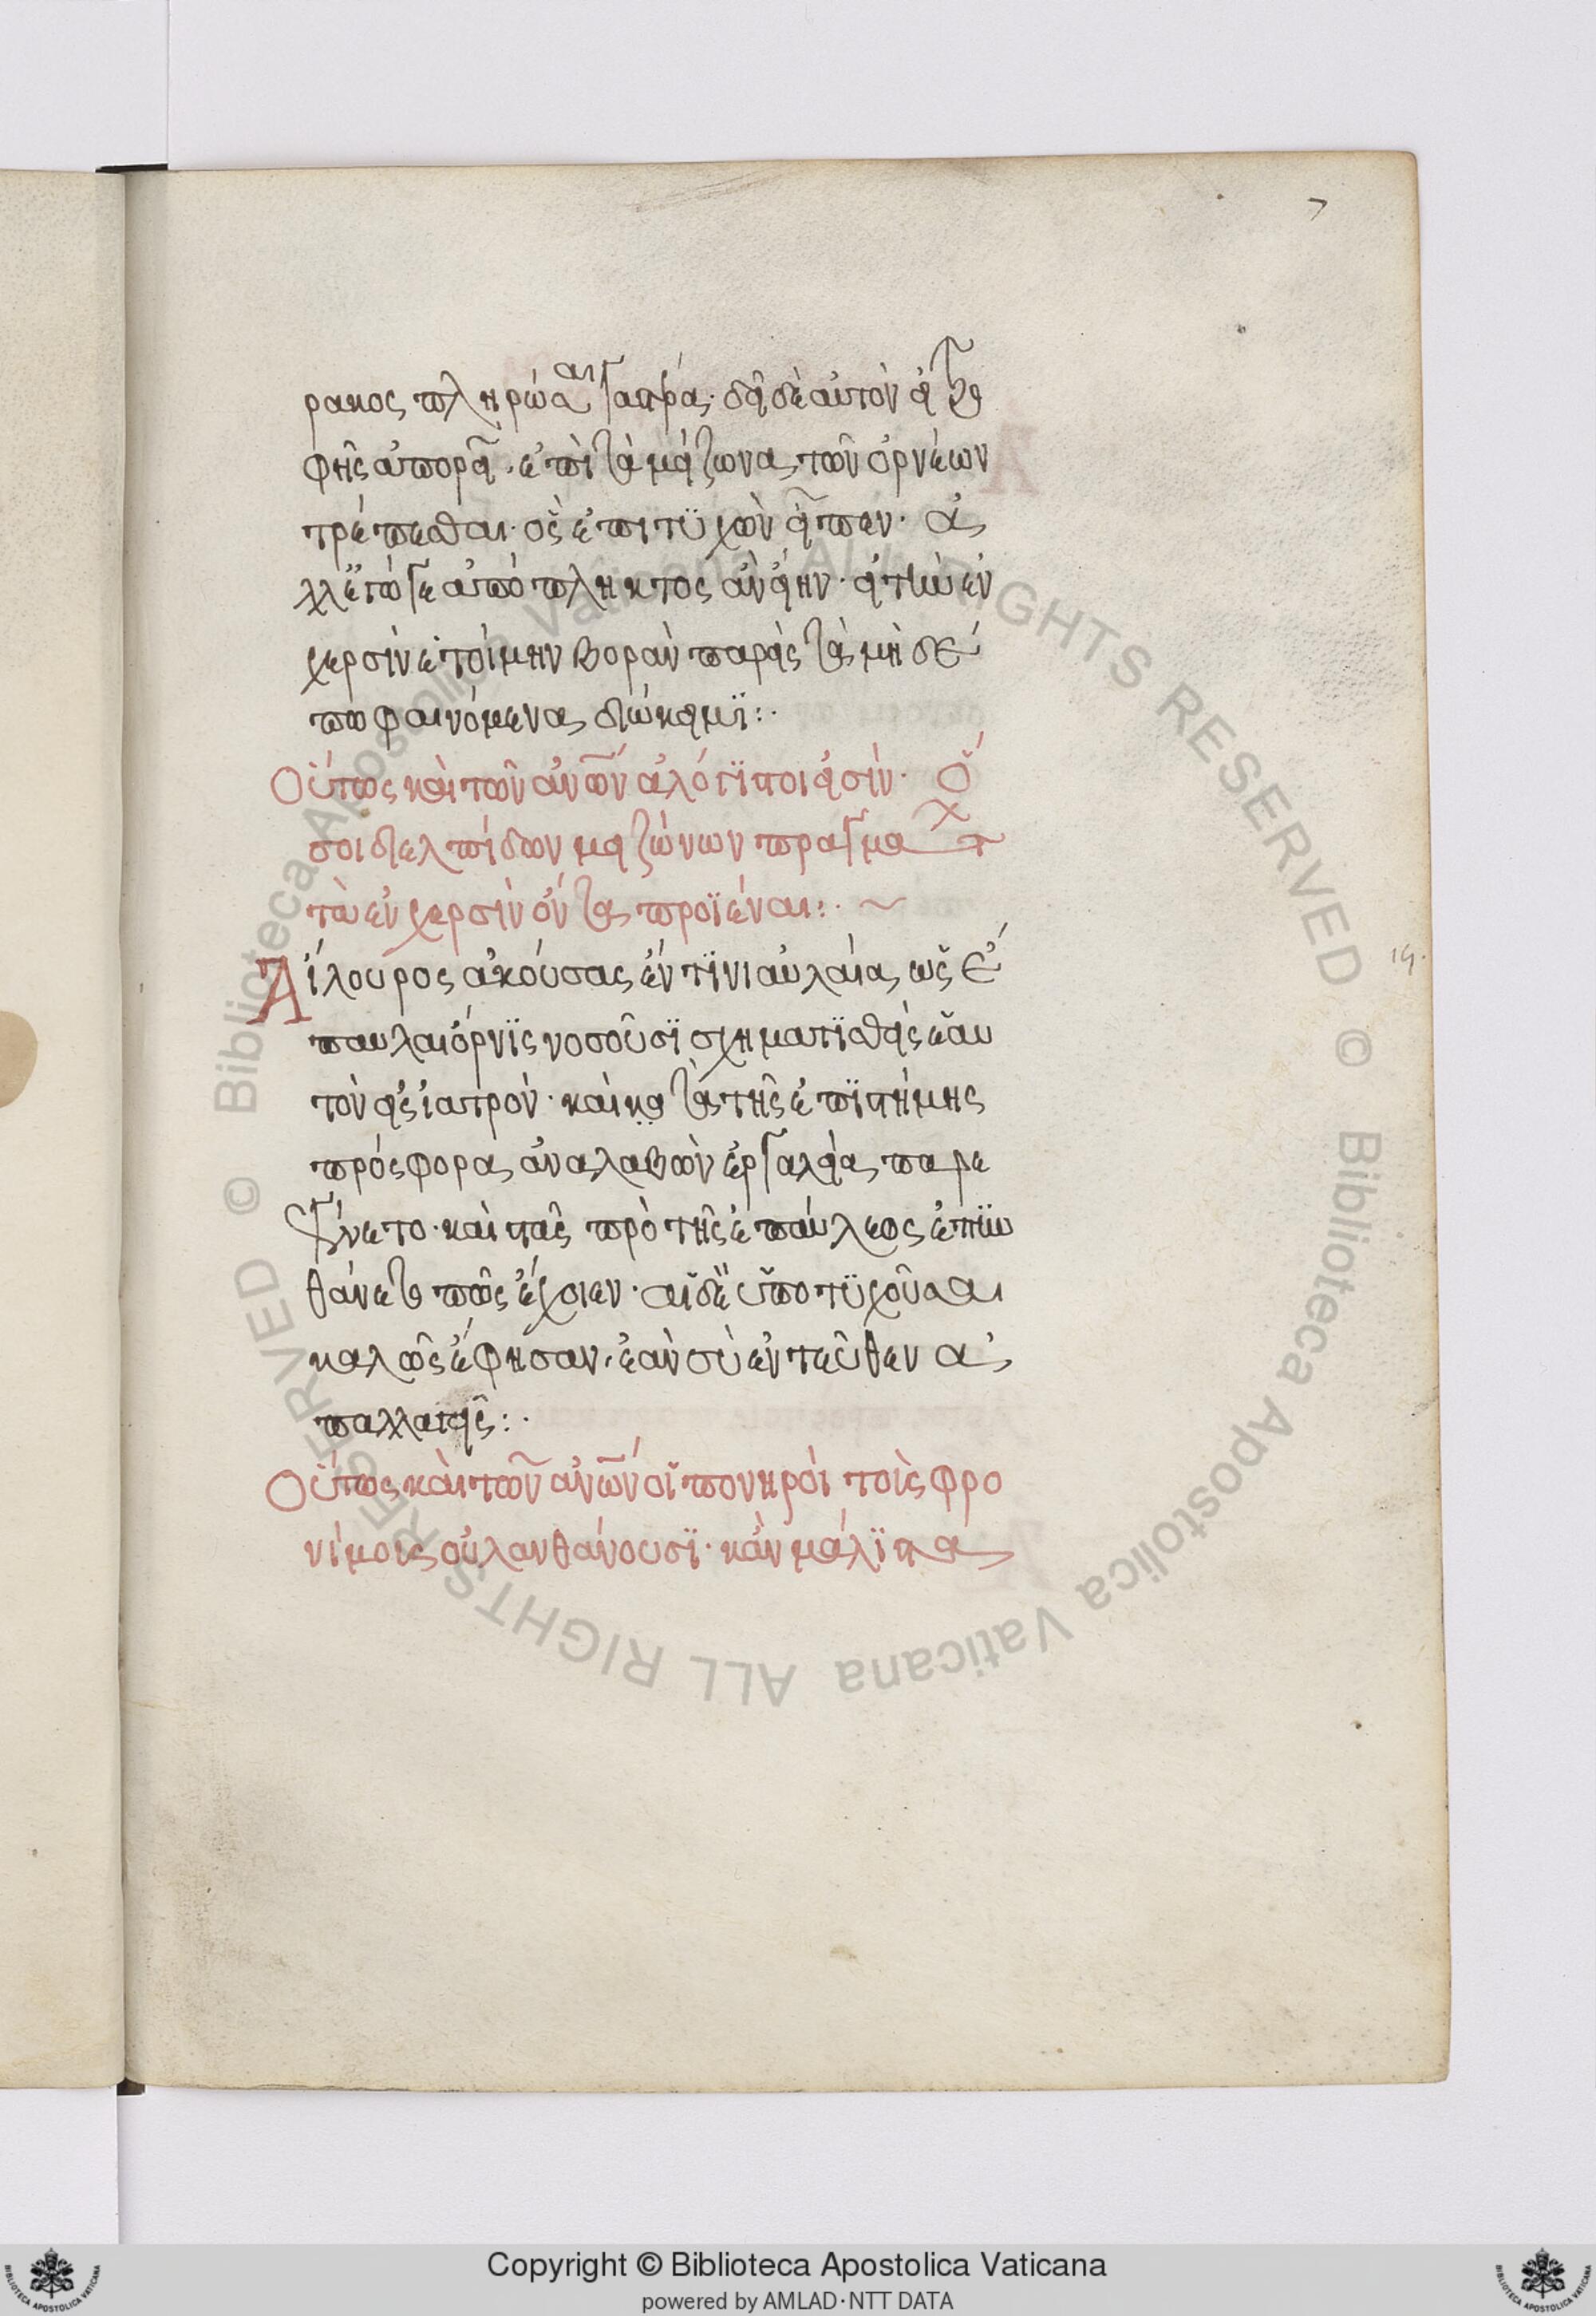 7
ρακος πληρῶσαι γαστέρα· δεῖ δὲ αὐτὸν εἰ τρο
φῆς ἀπορεῖ, ἐπὶ τὰ μείζονα τῶν ὀρνέων
τρέπεσθαι· ὁ δὲ ὑποτυχὼν εἶπεν· ἀ
λλ' ἔγωγε ἀπόπληκτος ἂν εἴην· εἰ τὴν ἐν
χερσὶν ἑτοίμην βορὰν παρεὶς τὰ μὴ δέ
πω φαινόμενα διώκοιμι:·
Οὕτως καὶ τῶν ἀνων ἀλόγιστοί εἰσιν· ὅ
σοι δι' ἐλπίδων μειζόνων πραγμάτων
τὰ ἐν χερσὶν ὄντα προΐεναι:· ~
Αἴλουρος ἀκούσας ἔν τινι αὐλαία, ὡς ἐ
παύλαι ὄρνις νοσοῦσι σχηματισθεὶς ἑαυ
τὸν εἰς ἰατρόν· καὶ κατὰ τῆς ἐπιστήμης
πρόσφορα ἀναλαβὼν ἐργαλεῖα παρε
γένετο· καὶ στὰς πρὸ τῆς ἐπαύλεως ἐπυν
θάνετο πῶς ἔχοιεν· αἱ δὲ ὑποτυχοῦσαι
καλῶς ἔφησαν, ἐὰν σὺ ἐντεῦθεν ἀ
παλλαγῇς:·
Οὕτως καὶ τῶν ἀνων οἱ πονηροὶ τοὺς φρο
νίμοις οὐ λανθάνουσι· κἂν μάλιστα
Copyright © Biblioteca Apostolica Vaticana
powered by AMLAD·NTT DATA